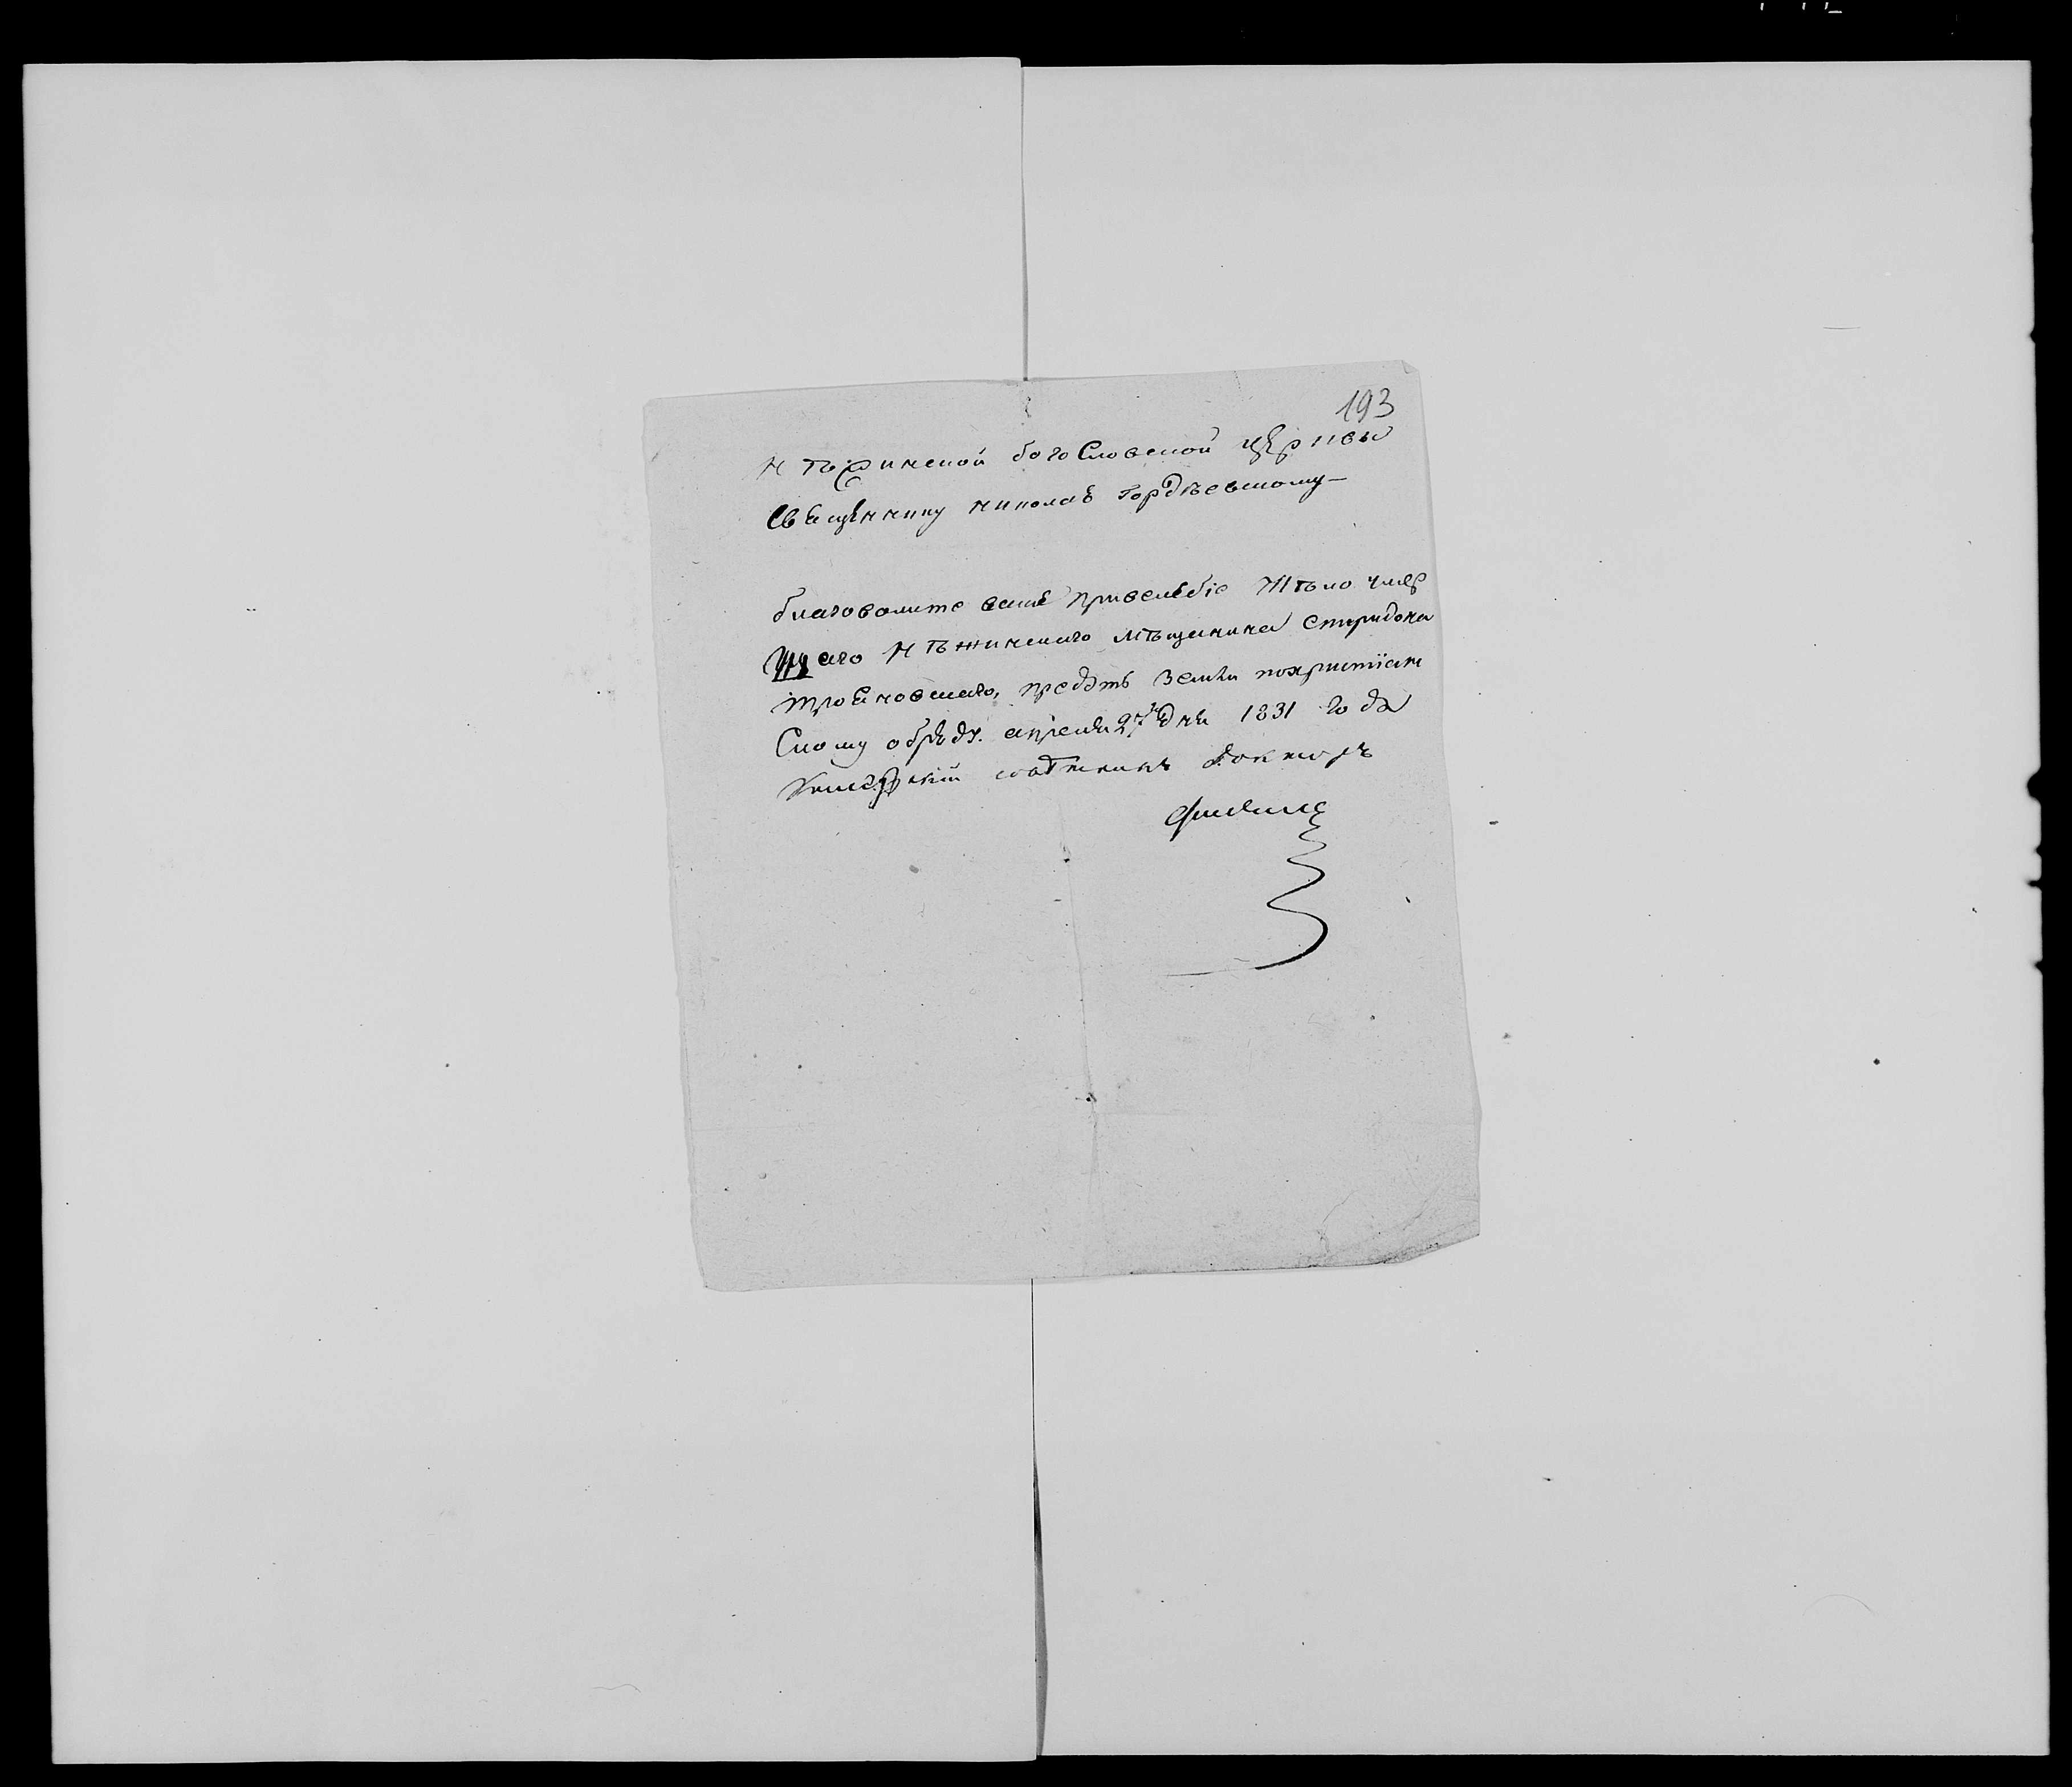 193
нѣжинской богословской церквы
священнику николаю гордѣевскому
благоволите ваше привелебіе тѣло умер
шаго нѣжинскаго мѣщанина спиридона
трояновскаго, предать земли похристіан
скому обряду. апреля 27 дня 1831 года
совѣтникъ докторъ